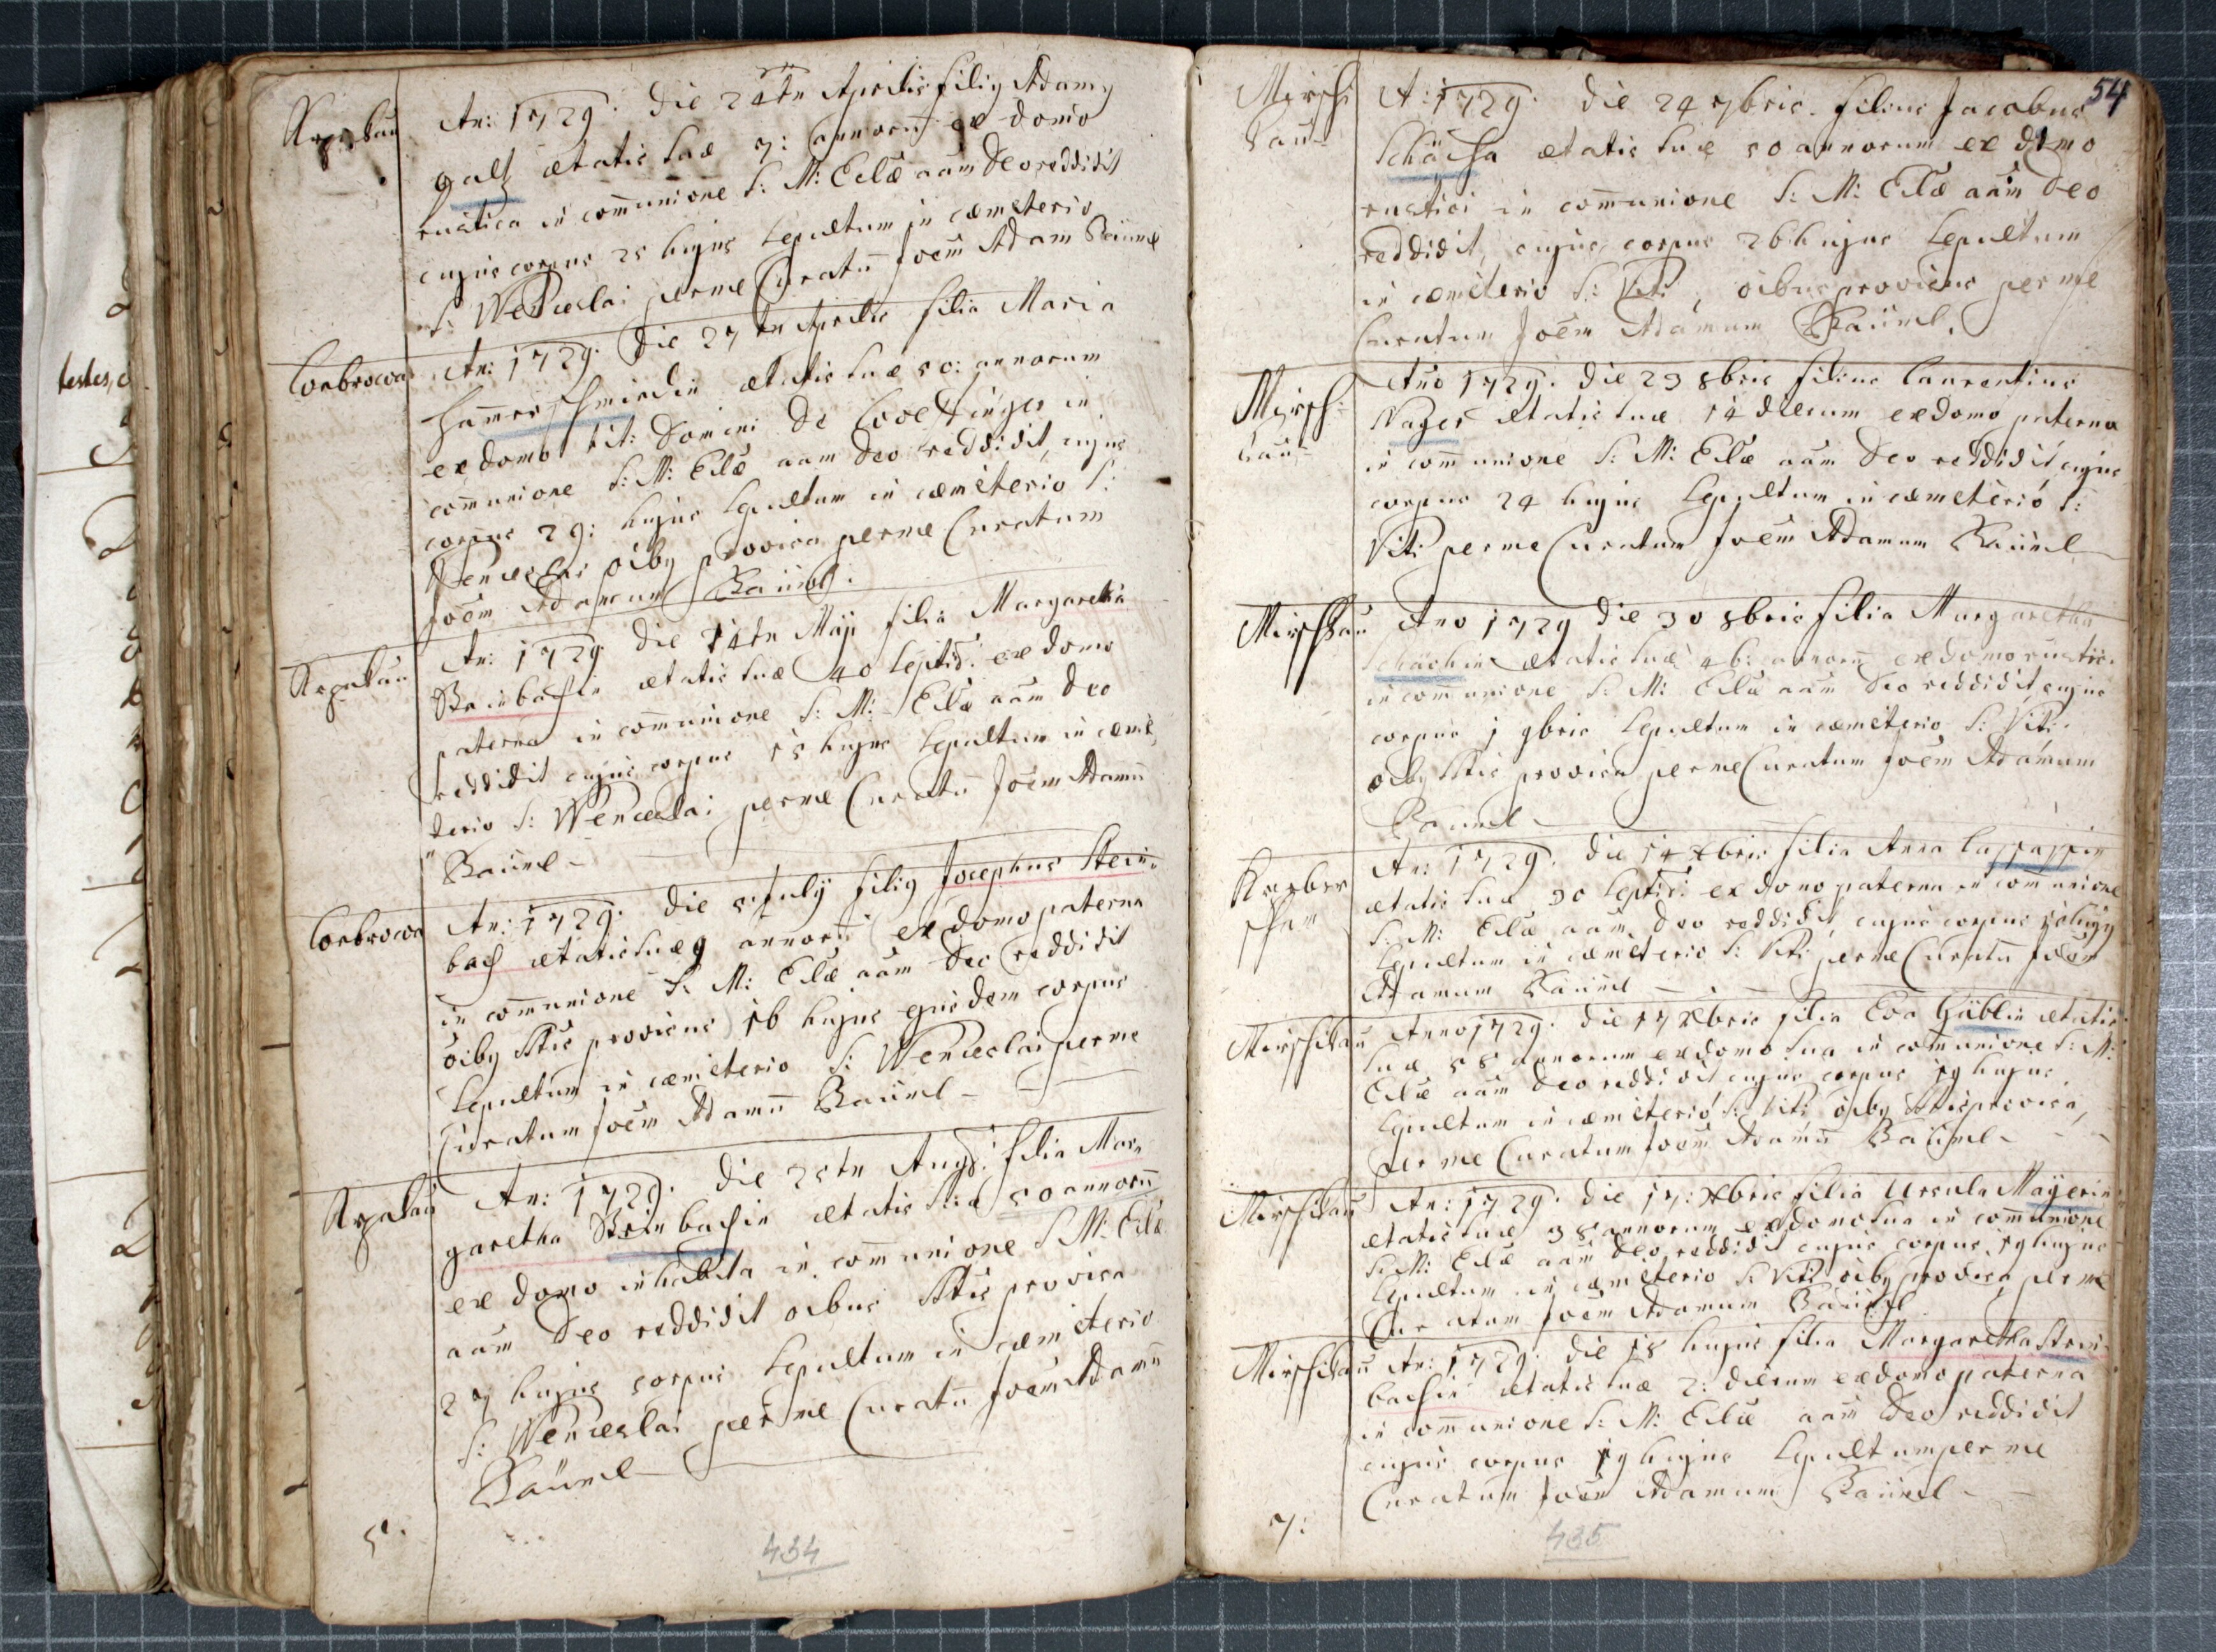 testes,
An: 1729. die 24tn Aprilis filiq Adamq
galt ætatis suæ 7: annorū ex domo
rustica in com̄unione S: M: Eclæ aām Deo reddidit
cujus corpus 25 hujus sepultum in cæmeterio
S: Wenceslai per me Curatū Joēm Adam Bäüml
Corbrowa
An: 1729. die 27 tn Aprilis filia Maria
Ham̄erschmiedin ætatis suæ 50: annorum
ex domo tit: Domini de in
com̄unione S: M: Eclæ aam Deo reddidit, cujus
corpus 29: hujus sepultum in cæmeterio S:
Wenceslai oībq provisa per me Curatum
Joēm Adamum Baüml.
An: 1729. die 14tn Maji filia Margaretha
Steinbachin ætatis suæ 40 septid: ex domo
paterna in com̄unione S: M: Eclæ aām Deo
reddidit cujus corpus 15 hujus sepultum in cæme
terio S: Wenceslai per me Curatū Joēm Adamū
Baüml
Corbrowa
An: 1729. die 5. Julÿ filiq Josephus Stein
bach ætatis suæ 9 annorū ex domo paterna
in com̄unione S: M: Eclæ aām Deo reddidit
oībq Sttis provisus 16 hujus ejusdem corpus
sepultum in cæmeterio S: Wenceslai per me
Curatum Joēm Adamū Baüml
An: 1729. die 25tn Augs: filia Mar
garetha Steinbachin ætatis suæ 50 annorū
ex domo inhabita in com̄unione S: M: Eclæ
aām Deo reddidit oībus Sttis provisa
27 hujus corpus sepultum in cæmeterio
S: Wenceslai per me Curatū Joēm Adamū
Baüml
5.
434
54
Mirschi
kau
A: 1729. die 24 7bris. filius Jacobus
Schäch ætatis suæ 50 annorum ex domo
rustici in com̄unione S: M: Eclæ aām Deo
reddidit, cujus corpus 26 hujus sepultum
in cæmeterio S: Viti, oībus provisus per me
Curatum Joēm Adamum Baüml.
Mirschi
kau
Año 1729. die 23 8bris filius Laurentius
Nager ætatis suæ 14 dierum ex domo paterna
in com̄unione S: M: Eclæ aām Deo reddidit, cujus
corpus 24 hujus sepultum in cæmeterio S:
Viti per me Curatum Joēm Adamum Baüml
Mirschkau
Ano 1729 die 30 8bris filia Margaretha
Schächin ætatis suæ 46: annorū ex domo rustic.
in com̄unione S: M: Eclæ aām Deo reddidit cujus
corpus 1 9bris sepultum in cæmeterio S: Viti.
oībq Sttis provisa per me Curatum Joēm Adamum
Baüml
An: 1729. die 14 Xbris filia Anna
ætatis suæ 30 septid: ex domo paterna in com̄unione
S: M: Eclæ aām Deo reddidit, cujus corpus 15 hujq
sepultum in cæmeterio S: Viti per me Curatū Joēm
Adamum Baüml
Mirschikau
Anno 1729. die 17 Xbris filia Eva Güblin ætatis
suæ 58 annorum ex domo sua in com̄unione S: M:
Eclæ aām Deo reddidit cujus corpus 19 hujus
sepultum in cæmeterio S: Viti oībq Sttis provisa,
per me Curatum Joēm Adamū Baüml
Mirschikau
An: 1729. die 17: Xbris filia Ursula Maÿerin
ætatis suæ 38 annorum ex domo sua in com̄unione
S: M: Eclæ aām Deo reddidit cujus corpus 19 hujus
sepultum in cæmeterio S: Viti oībq provisa per me
Curatum Joēm Adamum Baüml
Mirschikau
An: 1729. die 18 hujus filia Margaretha Stein
bachin ætatis suæ 2: dierum ex domo paterna
in com̄unione S: M: Eclæ aām Deo reddidit
cujus corpus 19 hujus sepultum per me
Curatum Joēm Adamum Baüml
7:
435